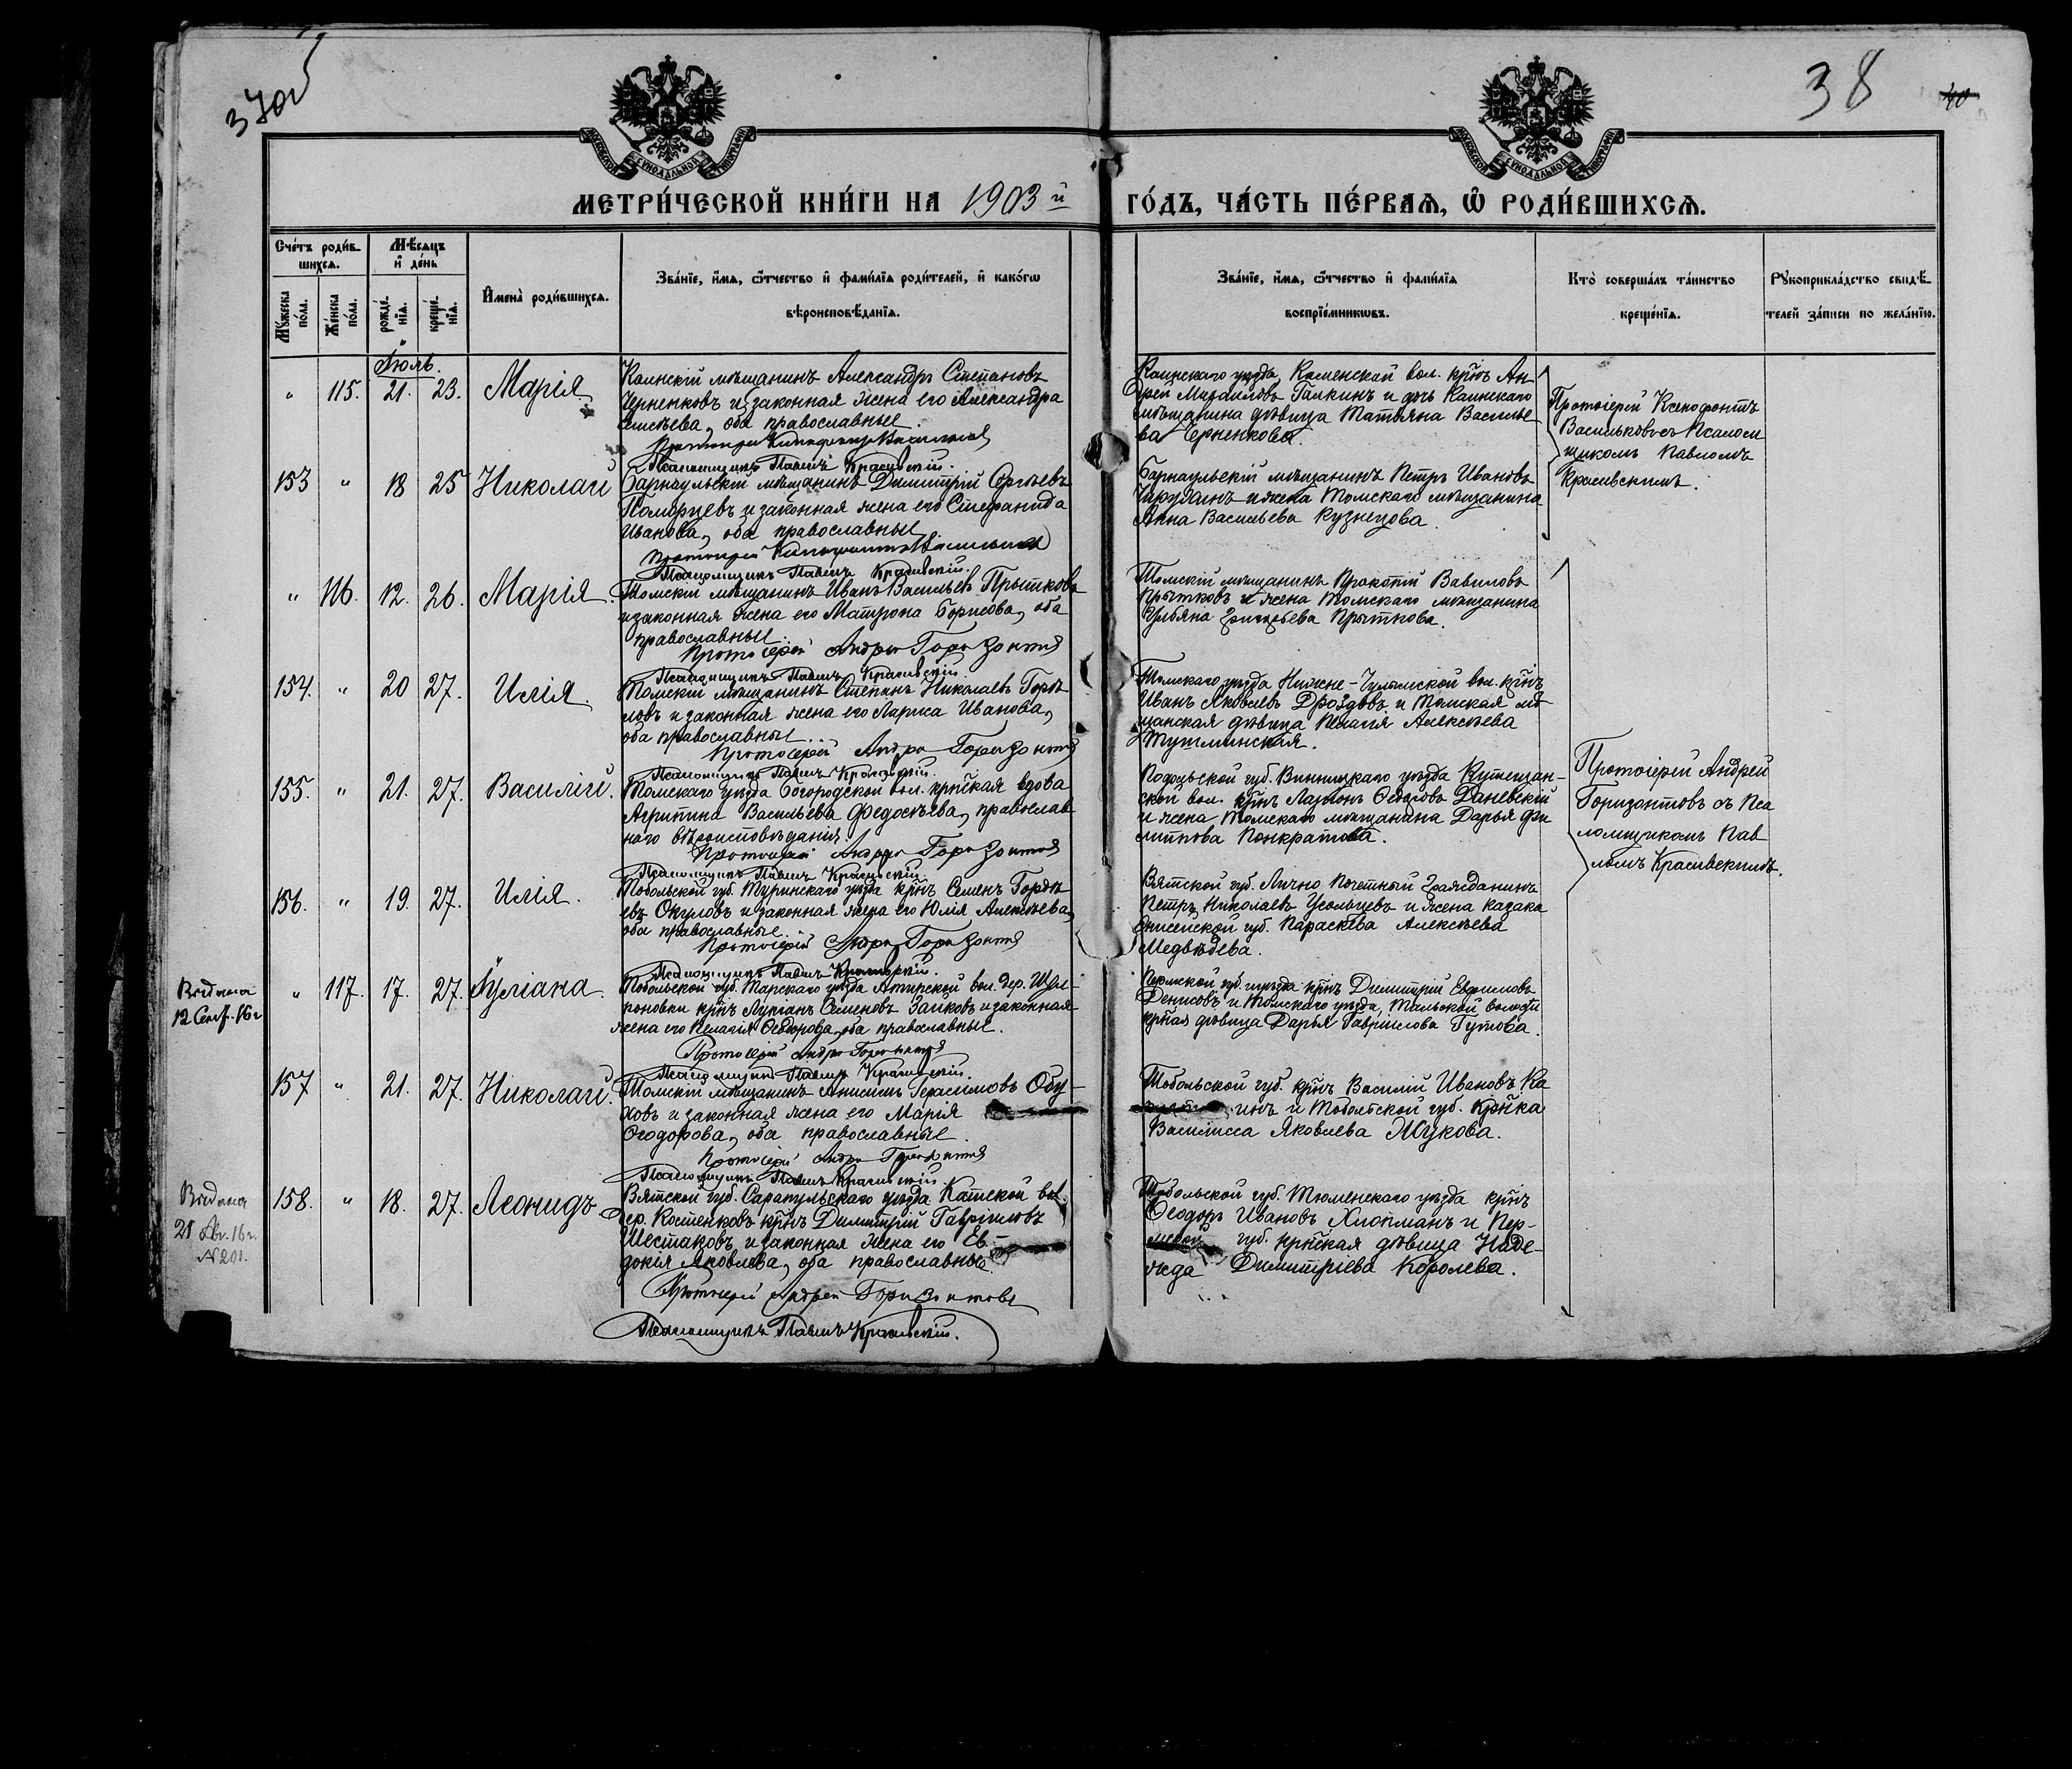 38
МЕТРИ́ЧЕСКОЙ КНИ́ГИ НА 1903 й ГО́ДЪ, ЧА́СТЬ ПЕ́РВАѦ, Ѽ РОДИ́ВШИХСѦ.
Сче́тъ роди́в-
шихсѧ.
Мѣ́сѧцъ
и҆ де́нь
Мꙋ́жеска
по́ла.
Же́нска
по́ла.
рожде́-
нїѧ.
креще́-
нїѧ.
И҆мена̀ роди́вшихсѧ.
Зва́нїе, и҆́мѧ, ѻ҆́тчество и҆ фами́лїѧ роди́телей, и҆ како́гѡ
вѣроисповѣ́данїѧ.
Зва́нїе, и҆́мѧ, ѻ҆́тчество и҆ фами́лїѧ
воспрїе́мникѡвъ.
Кто̀ соверша́лъ та́инство
креще́нїѧ.
Рꙋкоприкла́дство свидѣ́-
телей за́писи по жела́нїю.
Іюль.
" 115. 21. 23. Марія
Каинскій мѣщанинъ Александръ Степановъ
Черненковъ и законная жена его Александра
оба православные.
Псаломщикъ Павелъ Красивскій.
Каинскаго уѣзда, Каменской вол. крнъ Ан-
дрей Михаиловъ Галкинъ и дочь Каинскаго
мѣщанина дѣвица Татьяна Василье-
ва Черненкова.
Протоіерей Ксенофонтъ
Васильковъ съ Псалом
щикомъ Павломъ
Красивскимъ.
153 " 18 25 Николай
Барнаульскій мѣщанинъ Димитрій Сергѣевъ
и законная жена его Стефанида
Иванова, оба православные
Псаломщикъ Павелъ Красивскій.
Барнаульскій мѣщанинъ Петръ Ивановъ
и жена Томскаго мѣщанина
Анна Васильева Кузнецова.
" 116. 12. 26. Марія.
Томскій мѣщанинъ Иванъ Васильевъ Прытковъ
и законная жена его Матрона Борисова, оба
православные.
Протоіерей Андрей Горизонтовъ
Псаломщикъ Павелъ Красивскій.
Томскій мѣщанинъ Прокопій Вавиловъ
Прытковъ и жена Томскаго мѣщанина
Ульяна Григорьева Прыткова.
154. " 20 27. Илія.
Томскій мѣщанинъ Степанъ Николаевъ Горѣ-
ловъ и законная жена его Лариса Иванова,
оба православные.
Протоіерей Андрей Горизонтовъ
Псаломщикъ Павелъ Красивскій.
Томскаго уѣзда Нижне-Чулымской вол. крнъ
Иванъ Яковлевъ Дроздовъ и Томская мѣ-
щанская дѣвица Пелагія Алексѣева
155. " 21. 27. Василій.
Томскаго уѣзда Богородской вол. крнская вдова
Агрипина Васильева Федосѣева, православ-
наго вѣроисповѣданія
Протоіерей Андрей Горизонтовъ
Псаломщикъ Павелъ Красивскій.
Подольской губ. Винницкаго уѣзда
ской вол. крнъ Ѳедоровъ Даневскій
и жена Томскаго мѣщанина Дарья Фи-
липпова Понкратова.
Протоіерей Андрей
Горизонтовъ съ Пса
ломщикомъ Пав
ломъ Красивскимъ.
156. " 19. 27. Илія.
Тобольской губ. Туринскаго уѣзда крнъ Семенъ Гордѣ-
евъ Окуловъ и законная жена его Юлія Алексѣева,
оба православные.
Протоіерей Андрей Горизонтовъ
Вятской губ. Лично Почетный Гражданинъ
Петръ Николаевъ Усольцевъ и жена казака
Енисейской губ. Параскева Алексѣева
Медвѣдева.
Выдана
12 Сент. 16 г
" 117. 17. 27. Іуліана.
Псаломщикъ Павелъ Красивскій.
Тобольской губ. Тарскаго уѣзда Атирской вол. дер.
крнъ Лукіанъ Семеновъ Зайковъ и законная
жена его Пелагія Ѳеодорова, оба православные.
Протоіерей Андрей Горизонтовъ
Пермской губ. крнъ Димитрій Евфимовъ
Денисовъ и Томскаго уѣзда, Тальской волости
крная дѣвица Дарья Гавріилова Гутова.
157 " 21. 27. Николай.
Псаломщикъ Павелъ Красивскій.
Томскій мѣщанинъ Анисимъ Герасимовъ Обу-
ховъ и законная жена его Марія
Ѳеодорова, оба православные.
Протоіерей Андрей Горизонтовъ
Тобольской губ. крнъ Василій Ивановъ Ка
инъ и Тобольской губ. крнка
Василисса Яковлева Жукова.
Выдана
21 Авг. 16 г.
№ 201.
158. " 18. 27. Леонидъ
Псаломщикъ Павелъ Красивскій.
Вятской губ. Сарапульскаго уѣзда вол.
дер. Костенковъ крнъ Димитрій Гавріиловъ
Шестаковъ и законная жена его Ев-
докія Яковлева, оба православные.
Протоіерей Андрей Горизонтовъ
Псаломщикъ Павелъ Красивскій.
Тобольской губ. Тюменскаго уѣзда крнъ
Ѳеодоръ Ивановъ Хлопманъ и Пер-
мской губ. крнская дѣвица Наде-
жда Димитріева Королева.